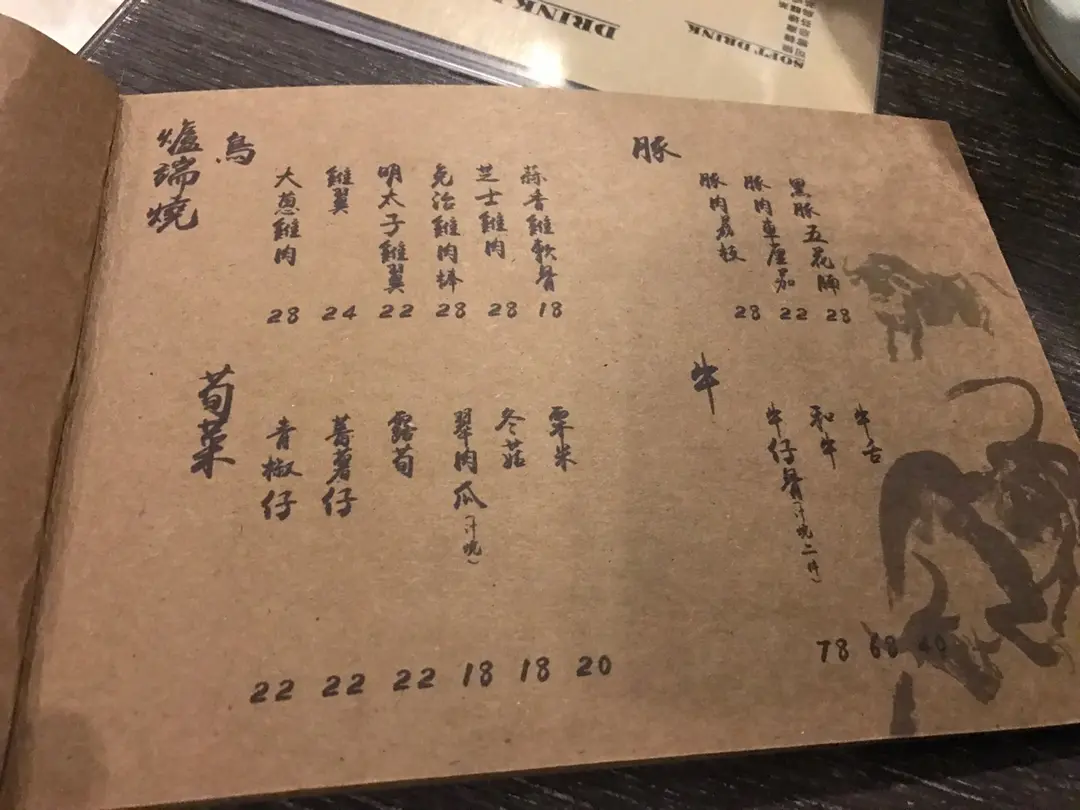 DRINK
SOFT DRINK
爐端燒
鳥
大葱雞肉
28
雞翼
24
明太子雞翼
22
免治雞肉棒
28
芝士雞肉
28
蒜香雞軟骨
18
豚
豚肉荔枝
28
豚肉車厘茄
22
黑豚五花腩
28
荀菜
青椒仔
22
蕃薯仔
22
露荀
22
翠肉瓜(汁燒)
18
冬菇
18
粟米
20
牛
牛仔骨(汁燒二件)
78
和牛
68
牛舌
40